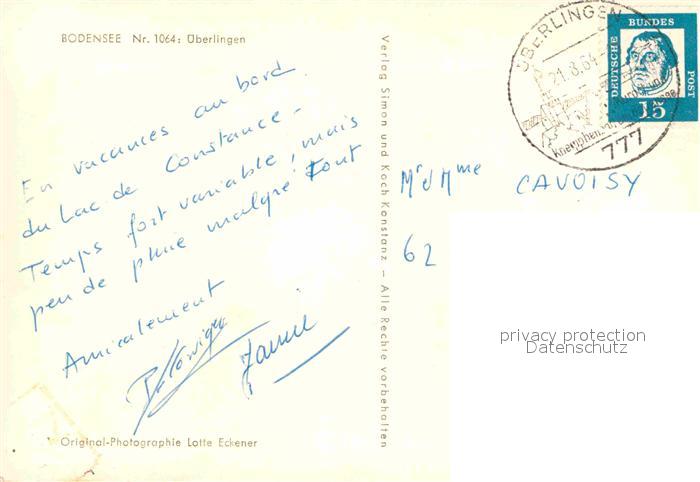 BODENSEE Nr. 1064: Überlingen
En vacances au bord
du Lac de Constance -
Temps fort variable, mais
peu de pluie malgré tout
Amicalement
Original-Photographie Lotte Eckener
Verlag Simon und Koch Konstanz – Alle Rechte vorbehalten
ÜBERLINGEN
21.8.64
777
DEUTSCHE BUNDES POST
15
Mr & Mme CAVOISY
62
privacy protection
Datenschutz